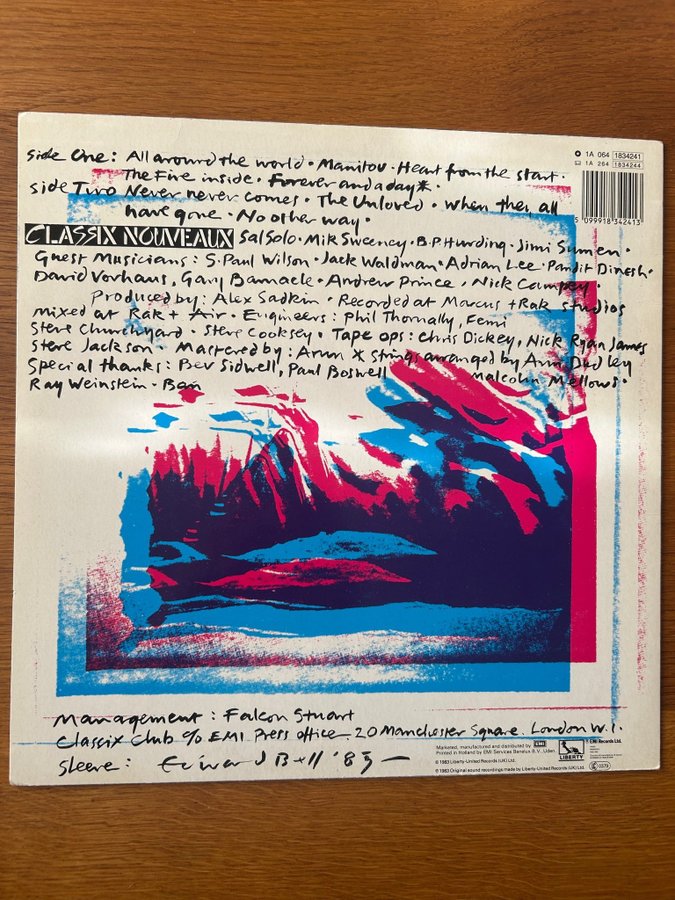 Side One: All around the world • Manitou • Heart from the start •
The Fire inside • Forever and a day* •
Side Two Never never comes • The Unloved • When they all
have gone • No other way •
CLASSIX NOUVEAUX Sal Solo • Mik Sweeney • B.P Hurding • Jimi Sumen •
Guest Musicians: S. Paul Wilson • Jack Waldman • Adrian Lee • Pandit Dinesh •
David Vorhaus, Gary Barnacle • Andrew Prince • Nick Campey
Produced by: Alex Sadkin • Recorded at Marcus + Rak studios
mixed at Rak + Air • Engineers: Phil Thornally, Femi
Steve Churchyard • Steve Cooksey • Tape ops: Chris Dickey, Nick Ryan, James
Steve Jackson • Mastered by: Arun X Strings arranged by Ann Dudley
Special thanks: Bev Sidwell, Paul Boswell Malcolm Mellows •
Ray Weinstein • Ben
1A 064 1834241
1A 264 1834244
5 099918 342413
Management: Falcon Stuart
Classix Club c/o EMI Press office 20 Manchester Square London W.1.
Sleeve: Edward Bell '83
Marketed, manufactured and distributed by EMI
Printed in Holland by EMI Services Benelux B.V., Uden
℗ 1983 Liberty-United Records (UK) Ltd.
© 1983 Original sound recordings made by Liberty-United Records (UK) Ltd.
LIBERTY
EMI Records Ltd.